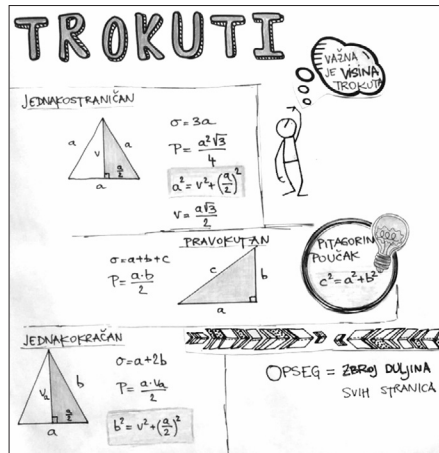 TROKUTI
VAŽNA
JE VISINA
TROKUTA
JEDNAKOSTRANIČAN
a
a
v
a/2
a
σ = 3a
P = a²√3/4
a² = v² + (a/2)²
v = a√3/2
PRAVOKUTAN
σ = a+b+c
P = a·b/2
c
b
a
PITAGORIN
POUČAK
c² = a² + b²
JEDNAKOKRAČAN
vₐ
b
a/2
a
σ = a+2b
P = a·vₐ/2
b² = v² + (a/2)²
OPSEG = ZBROJ DULJINA
SVIH STRANICA